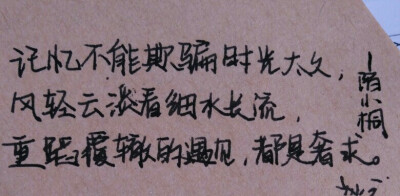 记忆不能欺骗时光太久，
风轻云淡看细水长流，
重蹈覆辙的遇见，都是奢求。
—陌小桐